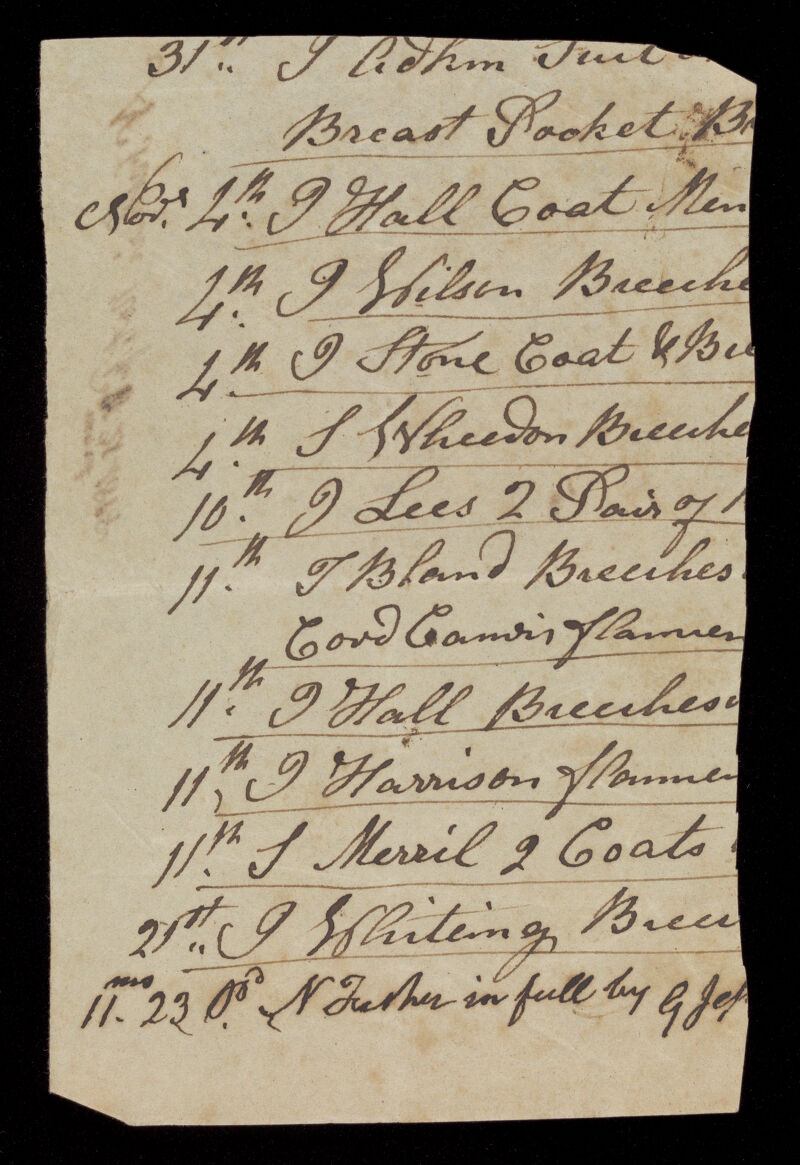 31st J
Breast Pocket
Novr. 4th. J Hall Coat Men
4th. J Wilson Breeche
4th. J Stone Coat & Bre
4th. S Wheedon Breeche
10th. J Lees 2 Pair of
11th. T Bland Breeches
Cord Canvis flannen
11th. J Hall Breeches
11th, J Harrison flannen
11th. S Merril 2 Coats
21st. J Whiteing Bree
11 mo. 23 Pd. N Tusher in full by G Jes